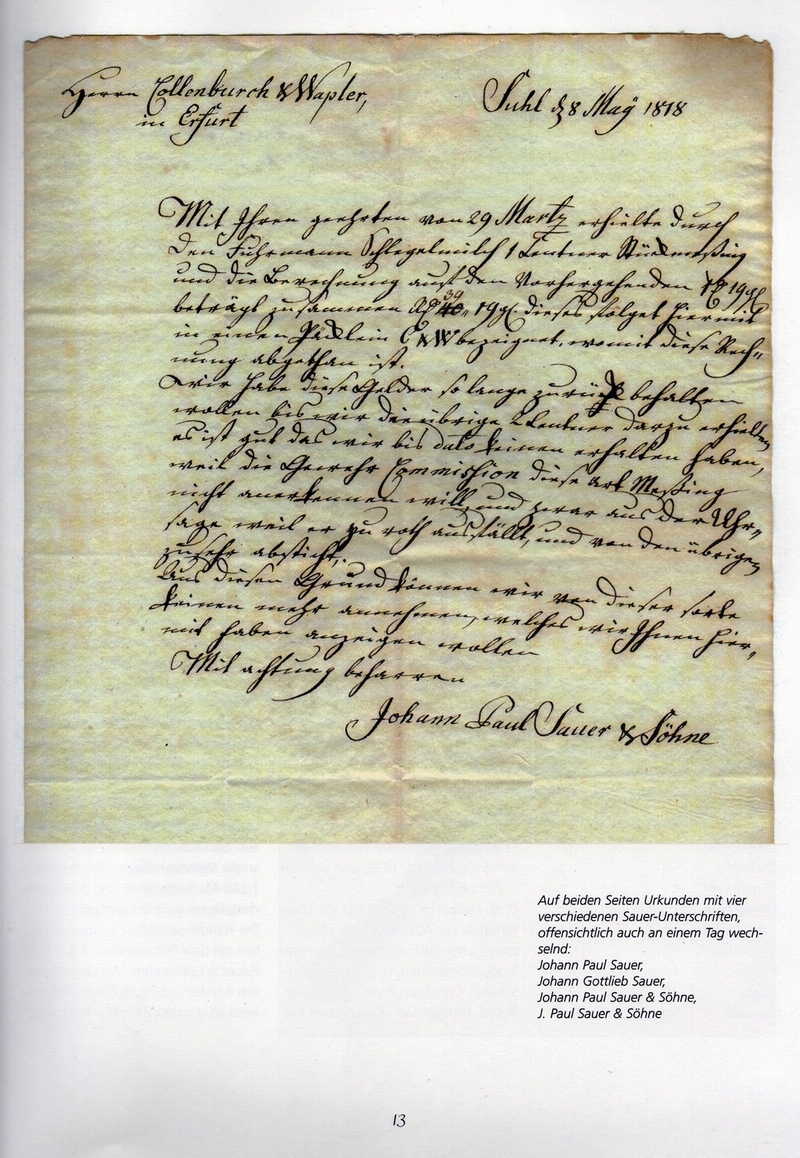 Herrn Collenburch & Wapler,
in Erfurt
Suhl d 8 Maÿ 1818
Mit Ihren geehrten von 29 Martz erhielte durch
den Fuhrmann Schlegelmilch 1 Centner Stückmeßing
und die Berechnung auf den Vorhergehenden 19 gl
beträgt zusammen 39 19 gl. dieses folget hiermit
in einen Päcklein C&W bezeignet, womit diese Rech„
nung abgethan ist.
Wir habe diese Gelder so lange zurück behalten
wollen bis wir die übrige 2 Centner darzu erhielten
es ist gut das wir bis dato keinen erhalten haben,
weil die Gewehr Commission diese art Meßing
nicht anerkennen will, und zwar aus der Uhr„
sage weil er zu roth ausfällt, und von den übrigen
zu sehr absticht.
Aus diesen Grund können wir von dieser sorte
keinen mehr annehmen, welches wir Ihnen hier„
mit haben anzeigen wollen
Mit achtung beharren
Johann Paul Sauer & Söhne
Auf beiden Seiten Urkunden mit vier
verschiedenen Sauer-Unterschriften,
offensichtlich auch an einem Tag wech-
selnd:
Johann Paul Sauer,
Johann Gottlieb Sauer,
Johann Paul Sauer & Söhne,
J. Paul Sauer & Söhne
13